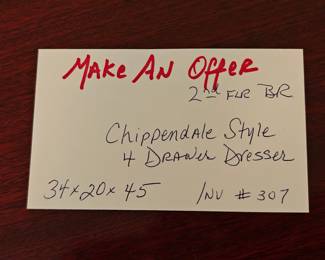 Make An Offer
2nd FLR BR
Chippendale Style
4 Drawer Dresser
34x20x45 INV # 307